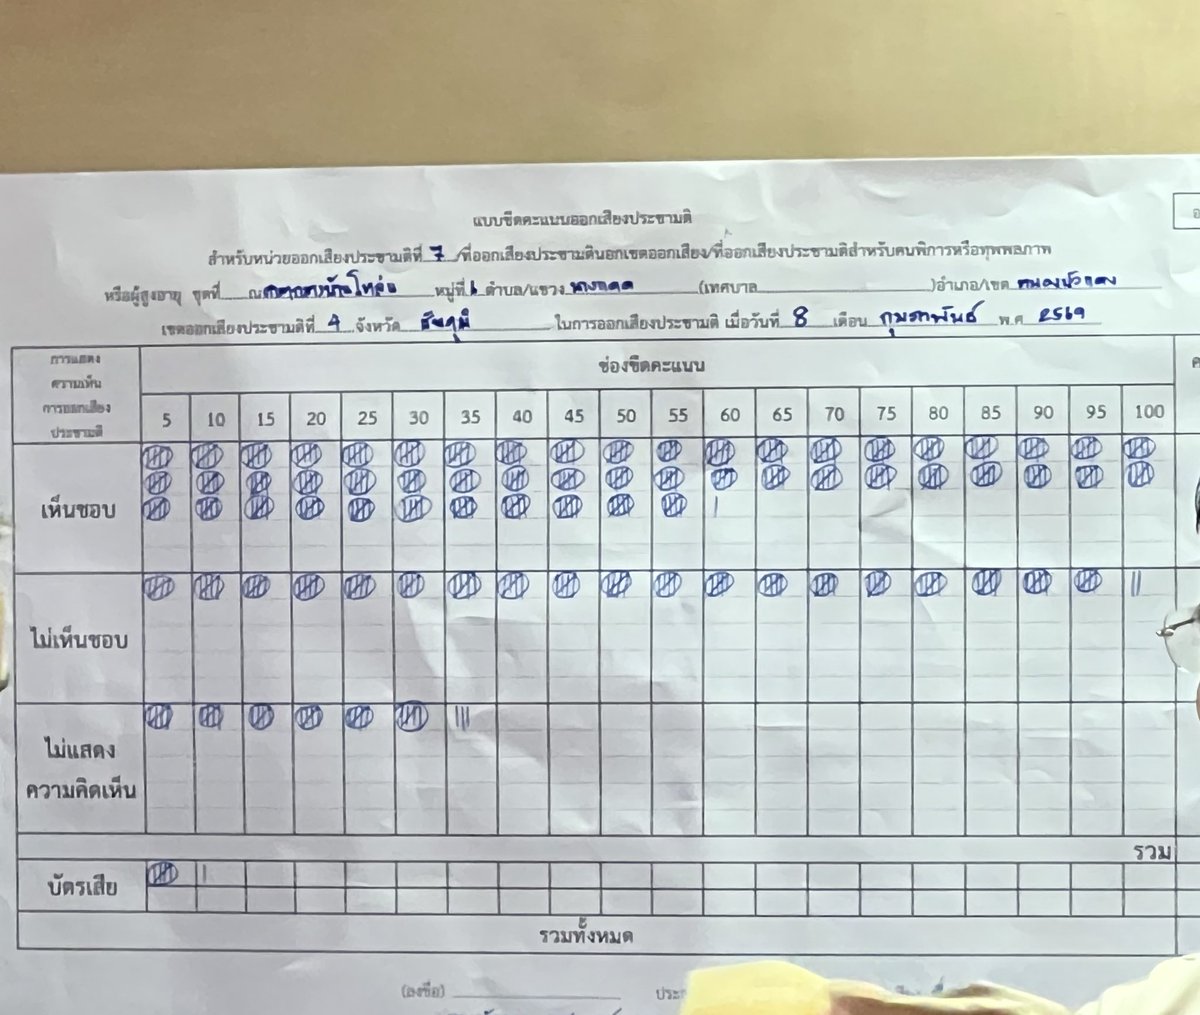 แบบขีดคะแนนออกเสียงประชามติ
สำหรับหน่วยออกเสียงประชามติที่ 7 /ที่ออกเสียงประชามตินอกเขตออกเสียง/ที่ออกเสียงประชามติสำหรับคนพิการหรือทุพพลภาพ
หรือผู้สูงอายุ ชุดที่ ณ หมู่ที่ 6 ตำบล/แขวง (เทศบาล )อำเภอ/เขต หนองบัวแดง
เขตออกเสียงประชามติที่ 4 จังหวัด ชัยภูมิ ในการออกเสียงประชามติ เมื่อวันที่ 8 เดือน กุมภาพันธ์ พ.ศ 2569
การแสดง
ความเห็น
การออกเสียง
ประชามติ
ช่องขีดคะแนน
5 10 15 20 25 30 35 40 45 50 55 60 65 70 75 80 85 90 95 100
เห็นชอบ
ไม่เห็นชอบ
ไม่แสดง
ความคิดเห็น
รวม
บัตรเสีย
รวมทั้งหมด
(ลงชื่อ)